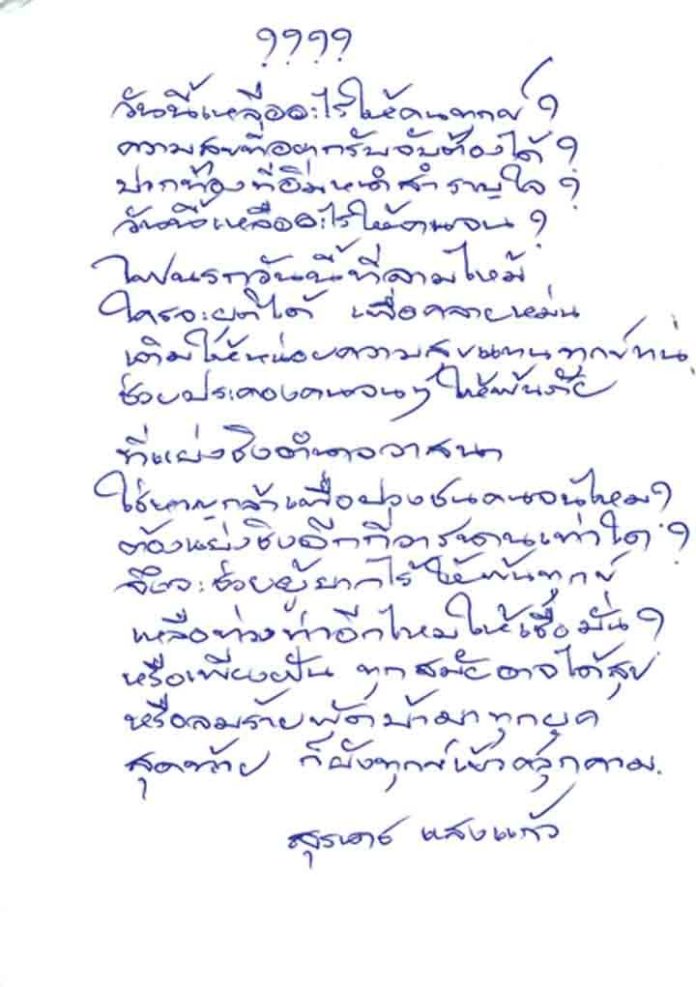 ????
วันนี้เหลืออะไรให้คนทุกข์ ?
ความสุขที่อยากรับจับต้องได้ ?
ปากท้องที่อิ่มหนำสำราญใจ ?
วันนี้เหลืออะไรให้คนจน ?
ไฟนรกวันนี้ที่ลามไหม้
ใครจะยุติได้ เพื่อคลายหม่น
เติมให้หน่อยความสุขแทนทุกข์ทน
ช่วยประคองคนจนๆ ให้พ้นภัย
ที่แย่งชิงอำนาจวาสนา
ใช่หาญกล้าเพื่อปวงชนคนจนไหม ?
ต้องแย่งชิงอีกกี่วารนานเท่าใด ?
จึงจะช่วยผู้ยากไร้ให้พ้นทุกข์
เหลือท่วงท่าอีกไหมให้เชื่อมั่น ?
หรือเพียงฝัน ทุกสมัยอาจได้สุข
หรือลมร้ายพัดบ้ามาทุกยุค
สุดท้าย ก็ยังทุกข์เข้าคลุกคาม.
แสงแก้ว